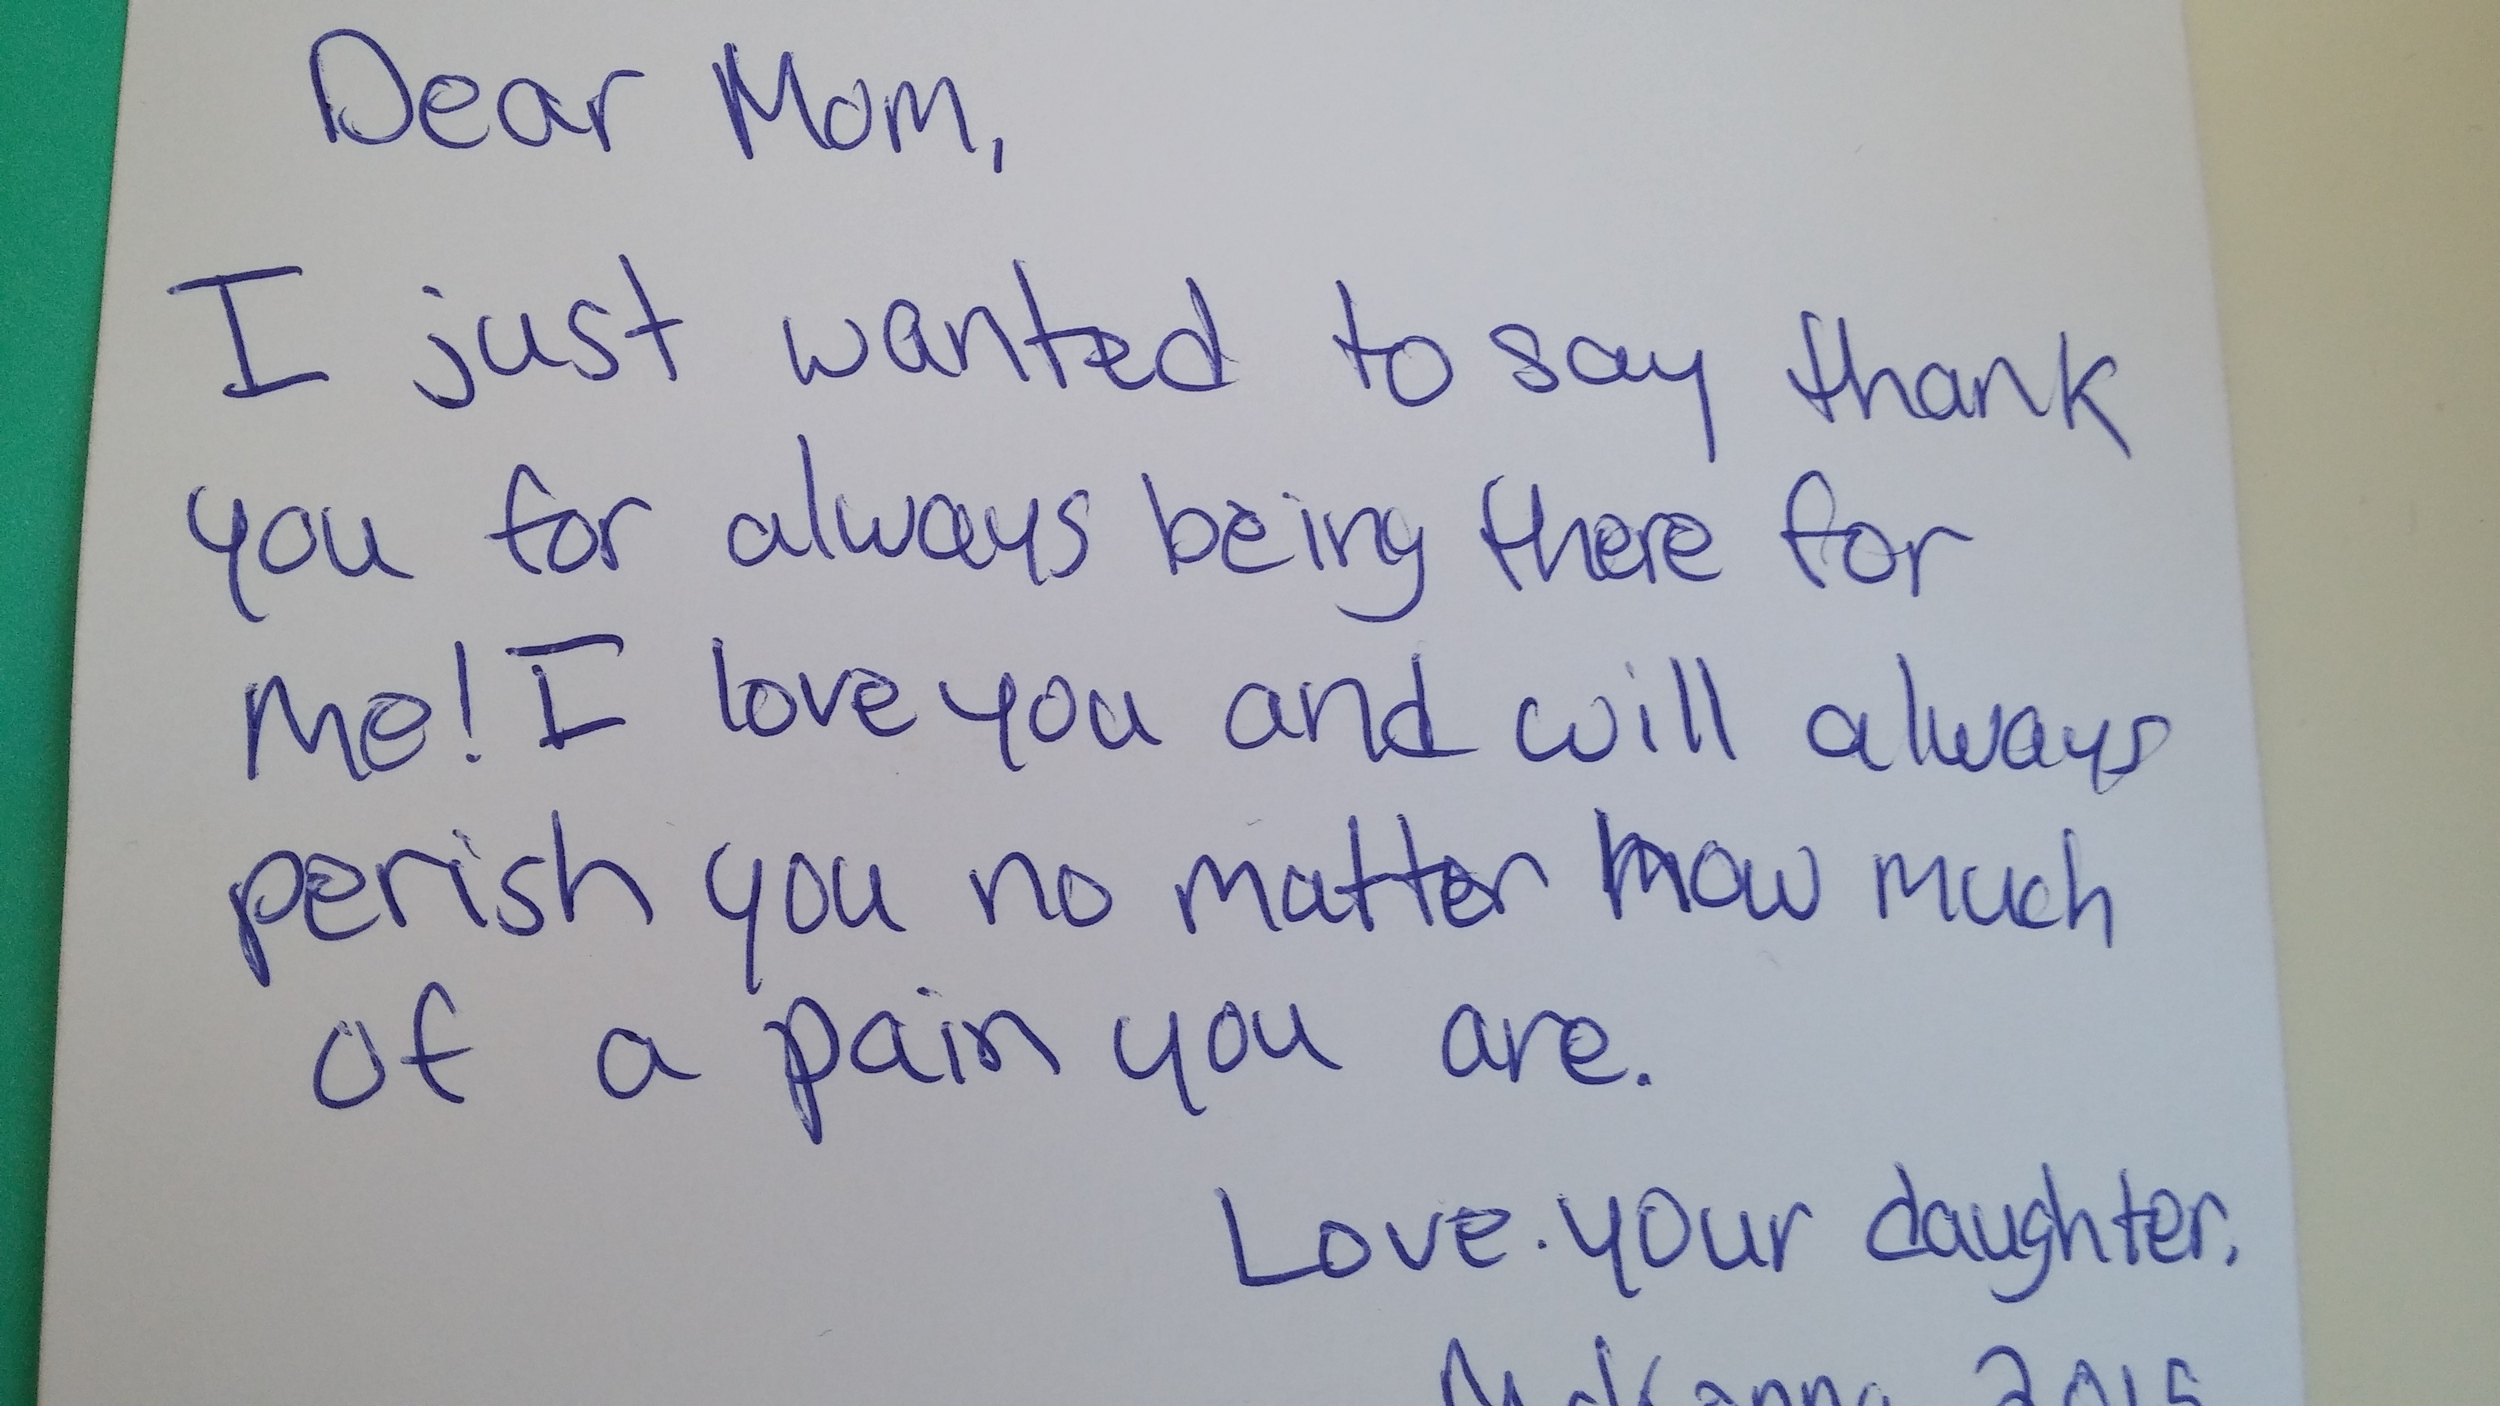 Dear Mom,
I just wanted to say thank
you for always being there for
me! I love you and will always
perish you no matter how much
of a pain you are.
Love. your daughter.
2015